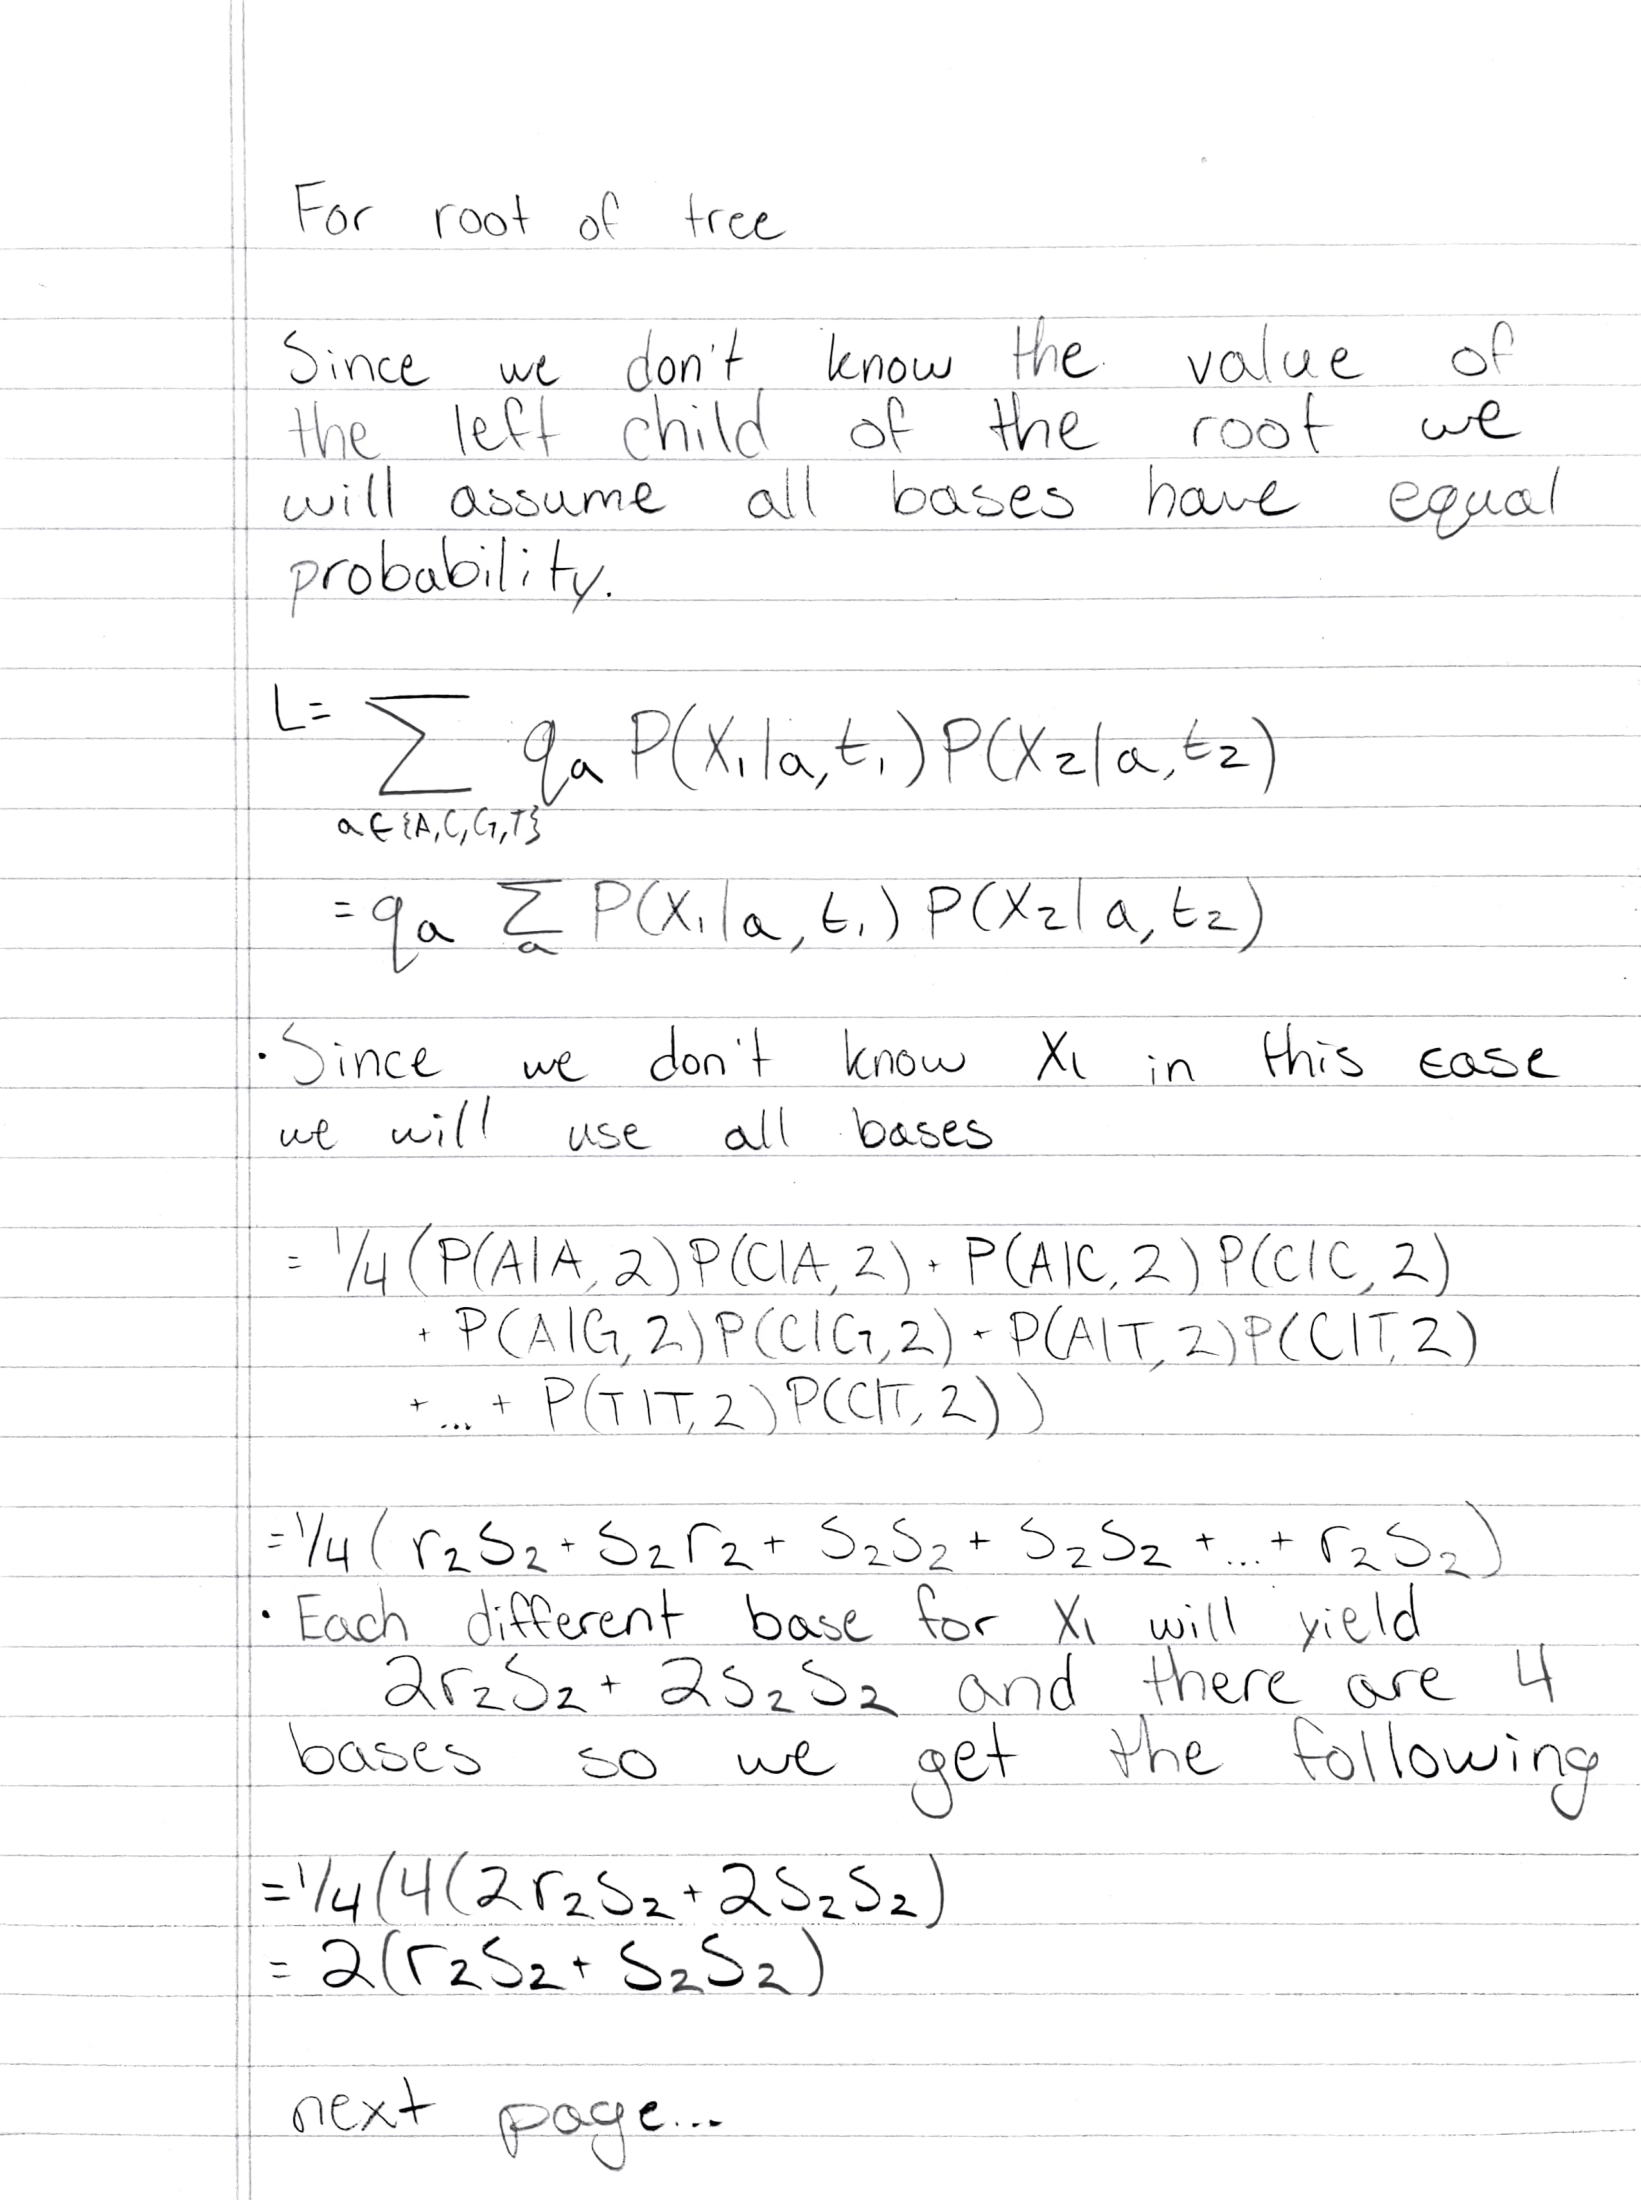 For root of tree
Since we don't know the value of
the left child of the root we
will assume all bases have equal
probability.
L= ∑ qₐ P(X₁|a,t₁)P(X₂|a,t₂)
a∈{A,C,G,T}
= qₐ ∑ₐ P(X₁|a,t₁) P(X₂|a,t₂)
· Since we don't know X₁ in this case
we will use all bases
= 1/4 (P(A|A,2)P(C|A,2) + P(A|C,2)P(C|C,2)
+ P(A|G,2)P(C|G,2) + P(A|T,2)P(C|T,2)
+ ... + P(T|T,2)P(C|T,2))
= 1/4 ( r₂S₂ + S₂r₂ + S₂S₂ + S₂S₂ + ... + r₂S₂)
· Each different base for X₁ will yield
2r₂S₂ + 2S₂S₂ and there are 4
bases so we get the following
= 1/4(4(2r₂S₂ + 2S₂S₂)
= 2(r₂S₂ + S₂S₂)
next page...